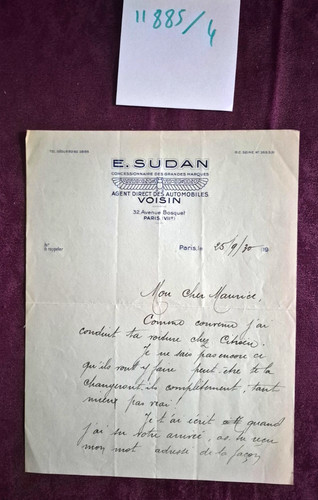 11885/4
E. SUDAN
CONCESSIONNAIRE DES GRANDES MARQUES
AGENT DIRECT DES AUTOMOBILES
VOISIN
32, Avenue Bosquet
PARIS (VIIe)
à rappeler
Paris, le 25/9/30 19
Mon Cher Maurice.
Comme convenu j'ai
conduit ta voiture chez Citroën.
Je ne sais pas encore ce
qu'ils vont y faire peut-être te la
changeront ils complètement, tant
mieux pas vrai!
Je t'ai écrit quand
j'ai su votre arrivée, as-tu reçu
mon mot adressé de la façon